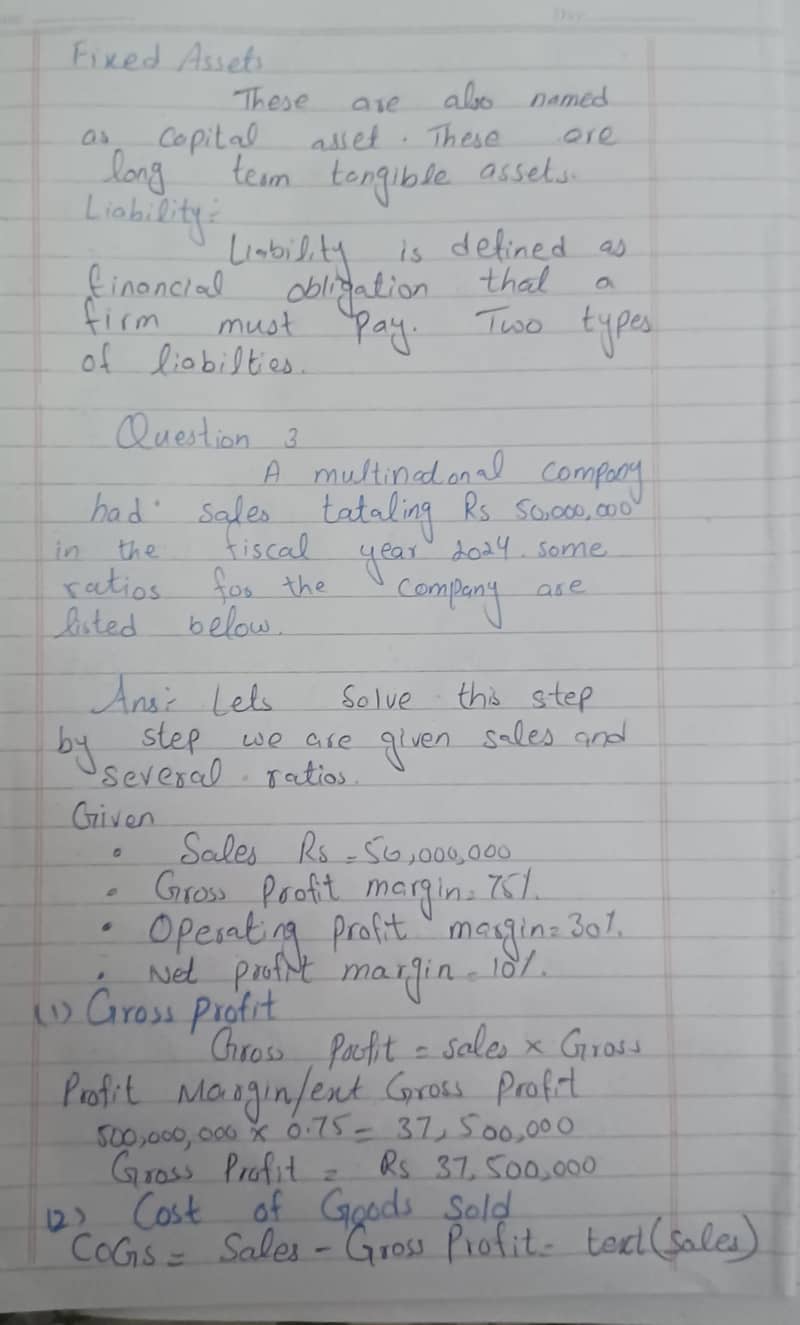 Fixed Assets
These are also named
as Capital asset. These are
long term tangible assets.
Liability:-
Liability is defined as
financial obligation that a
firm must pay. Two types
of liabilties.
Question 3
A multinadonal company
had sales tataling Rs 50,000,000
in the fiscal year 2024. some
ratios for the company are
listed below.
Ans:- Lets Solve this step
by step we are given sales and
several ratios.
Given
• Sales Rs = 50,000,000
• Gross Profit margin = 75%.
• Operating Profit margin = 30%.
• Net profit margin = 10%.
(1) Gross Profit
Gross Profit = sales x Gross
Profit Margin/ext Gross Profit
500,000,000 x 0.75 = 37,500,000
Gross Profit = Rs 37,500,000
(2) Cost of Goods Sold
COGS = Sales - Gross Profit = text(sales)